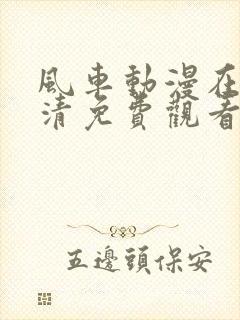 風車動漫在
清免費觀看
五邊頭保安